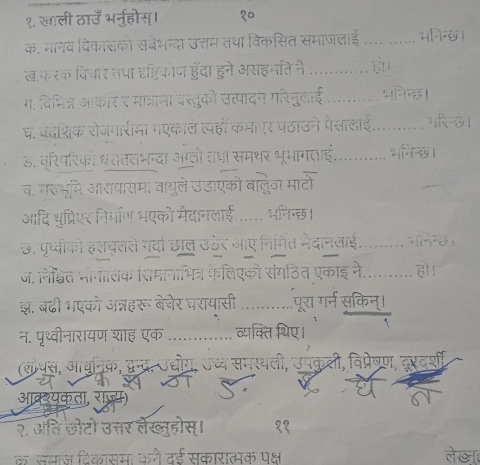 १. खाली ठाउँ भर्नुहोस्। १०
क. मानव विकासको सबैभन्दा उत्तम तथा विकसित समाजलाई ............ भनिन्छ।
ख. फरक विचार तथा दृष्टिकोण हुँदा हुने असहमति नै ............ हो।
ग. विभिन्न आकार र मात्रामा वस्तुको उत्पादन गरिनुलाई ............ भनिन्छ।
घ. वैदेशिक रोजगारीमा गएकाले त्यहाँ कमाएर पठाउने पैसालाई ............ गरिन्छ।
ङ. वरिपरिको धरातलभन्दा अग्लो तथा समथर भूभागलाई ............ भनिन्छ।
च. मरुभूमि आसपासमा वायुले उडाएको बालुवा माटो
आदि थुप्रिएर निर्माण भएको मैदानलाई ...... भनिन्छ।
छ. पृथ्वीको हलचलले गर्दा छाल उठेर आए निर्मित मैदानलाई .......... भनिन्छ।
ज. निश्चित भौगोलिक सिमानाभित्र फैलिएको संगठित एकाइ नै .......... हो।
झ. बढी भएको अन्नहरू बेचेर घरायासी ............ पूरा गर्न सकिन्।
न. पृथ्वीनारायण शाह एक ............ व्यक्ति थिए।
(लोयस, आधुनिक, द्वन्द्व, उद्योग, उच्च समस्थली, उपकुली, विप्रेषण, दूरदर्शी
च क ख ग ङ. छ घ न
आवश्यकता, राज्य)
२. अति छोटो उत्तर लेख्नुहोस्। ११
क. समाज विकासमा कुनै दुई सकारात्मक पक्ष लेख्नु